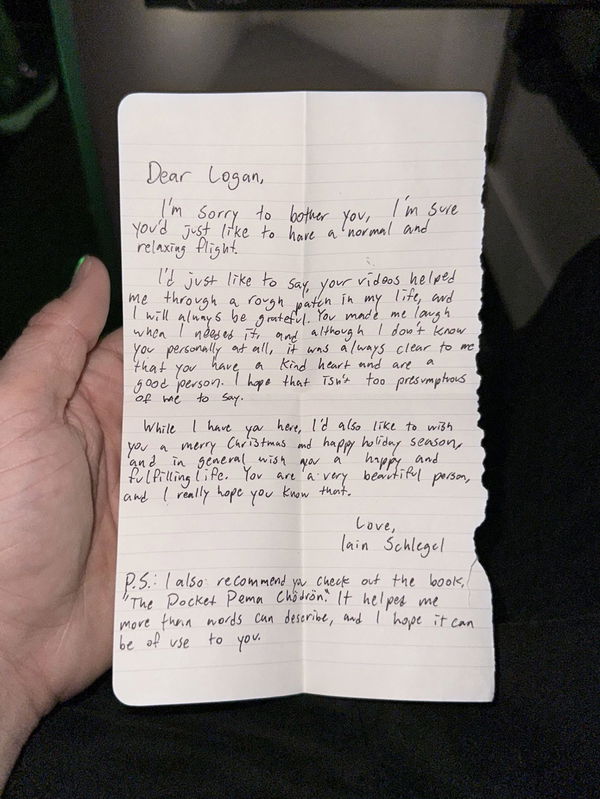 Dear Logan,
I'm sorry to bother you, I'm sure
you'd just like to have a normal and
relaxing flight.
I'd just like to say, your videos helped
me through a rough patch in my life, and
I will always be grateful. You made me laugh
when I needed it, and although I don't know
you personally at all, it was always clear to me
that you have a kind heart and are a
good person. I hope that isn't too presumptuous
of me to say.
While I have you here, I'd also like to wish
you a merry Christmas and happy holiday season,
and in general wish you a happy and
fulfilling life. You are a very beautiful person,
and I really hope you know that.
Love,
Iain Schlegel
P.S.: I also recommend you check out the book,
"The Pocket Pema Chödrön." It helped me
more than words can describe, and I hope it can
be of use to you.